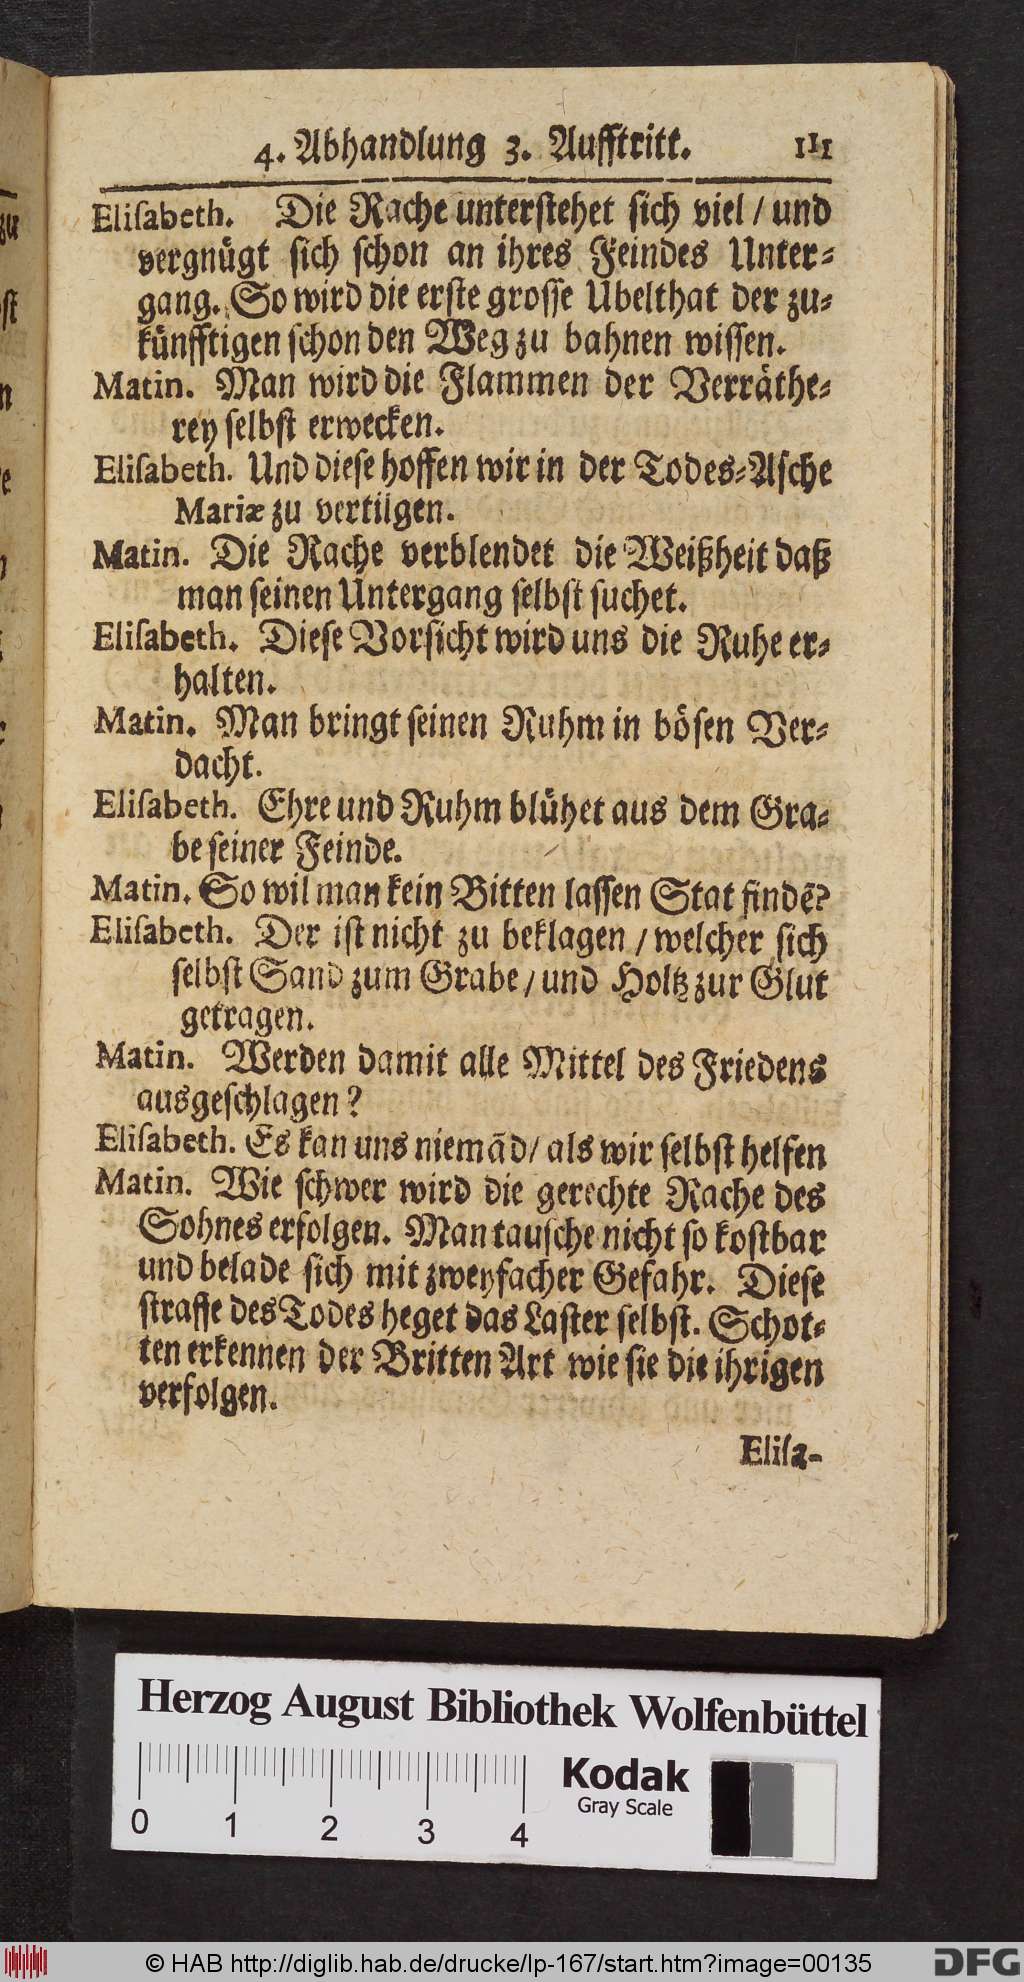 4. Abhandlung 3. Aufftritt. 111
Elisabeth. Die Rache unterstehet sich viel / und
vergnügt sich schon an ihres Feindes Unter-
gang. So wird die erste grosse Ubelthat der zu-
künfftigen schon den Weg zu bahnen wissen.
Matin. Man wird die Flammen der Verräthe-
rey selbst erwecken.
Elisabeth. Und diese hoffen wir in der Todes-Asche
Mariæ zu vertilgen.
Matin. Die Rache verblendet die Weißheit daß
man seinen Untergang selbst suchet.
Elisabeth. Diese Vorsicht wird uns die Ruhe er-
halten.
Matin. Man bringt seinen Ruhm in bösen Ver-
dacht.
Elisabeth. Ehre und Ruhm blühet aus dem Gra-
be seiner Feinde.
Matin. So wil man kein Bitten lassen Stat findẽ?
Elisabeth. Der ist nicht zu beklagen / welcher sich
selbst Sand zum Grabe / und Holtz zur Glut
getragen.
Matin. Werden damit alle Mittel des Friedens
ausgeschlagen?
Elisabeth. Es kan uns niemãd / als wir selbst helfen
Matin. Wie schwer wird die gerechte Rache des
Sohnes erfolgen. Man tausche nicht so kostbar
und belade sich mit zweyfacher Gefahr. Diese
straffe des Todes heget das Laster selbst. Schot-
ten erkennen der Britten Art wie sie die ihrigen
verfolgen.
Elisa-
Herzog August Bibliothek Wolfenbüttel
Kodak
Gray Scale
0 1 2 3 4
© HAB http://diglib.hab.de/drucke/lp-167/start.htm?image=00135
DFG